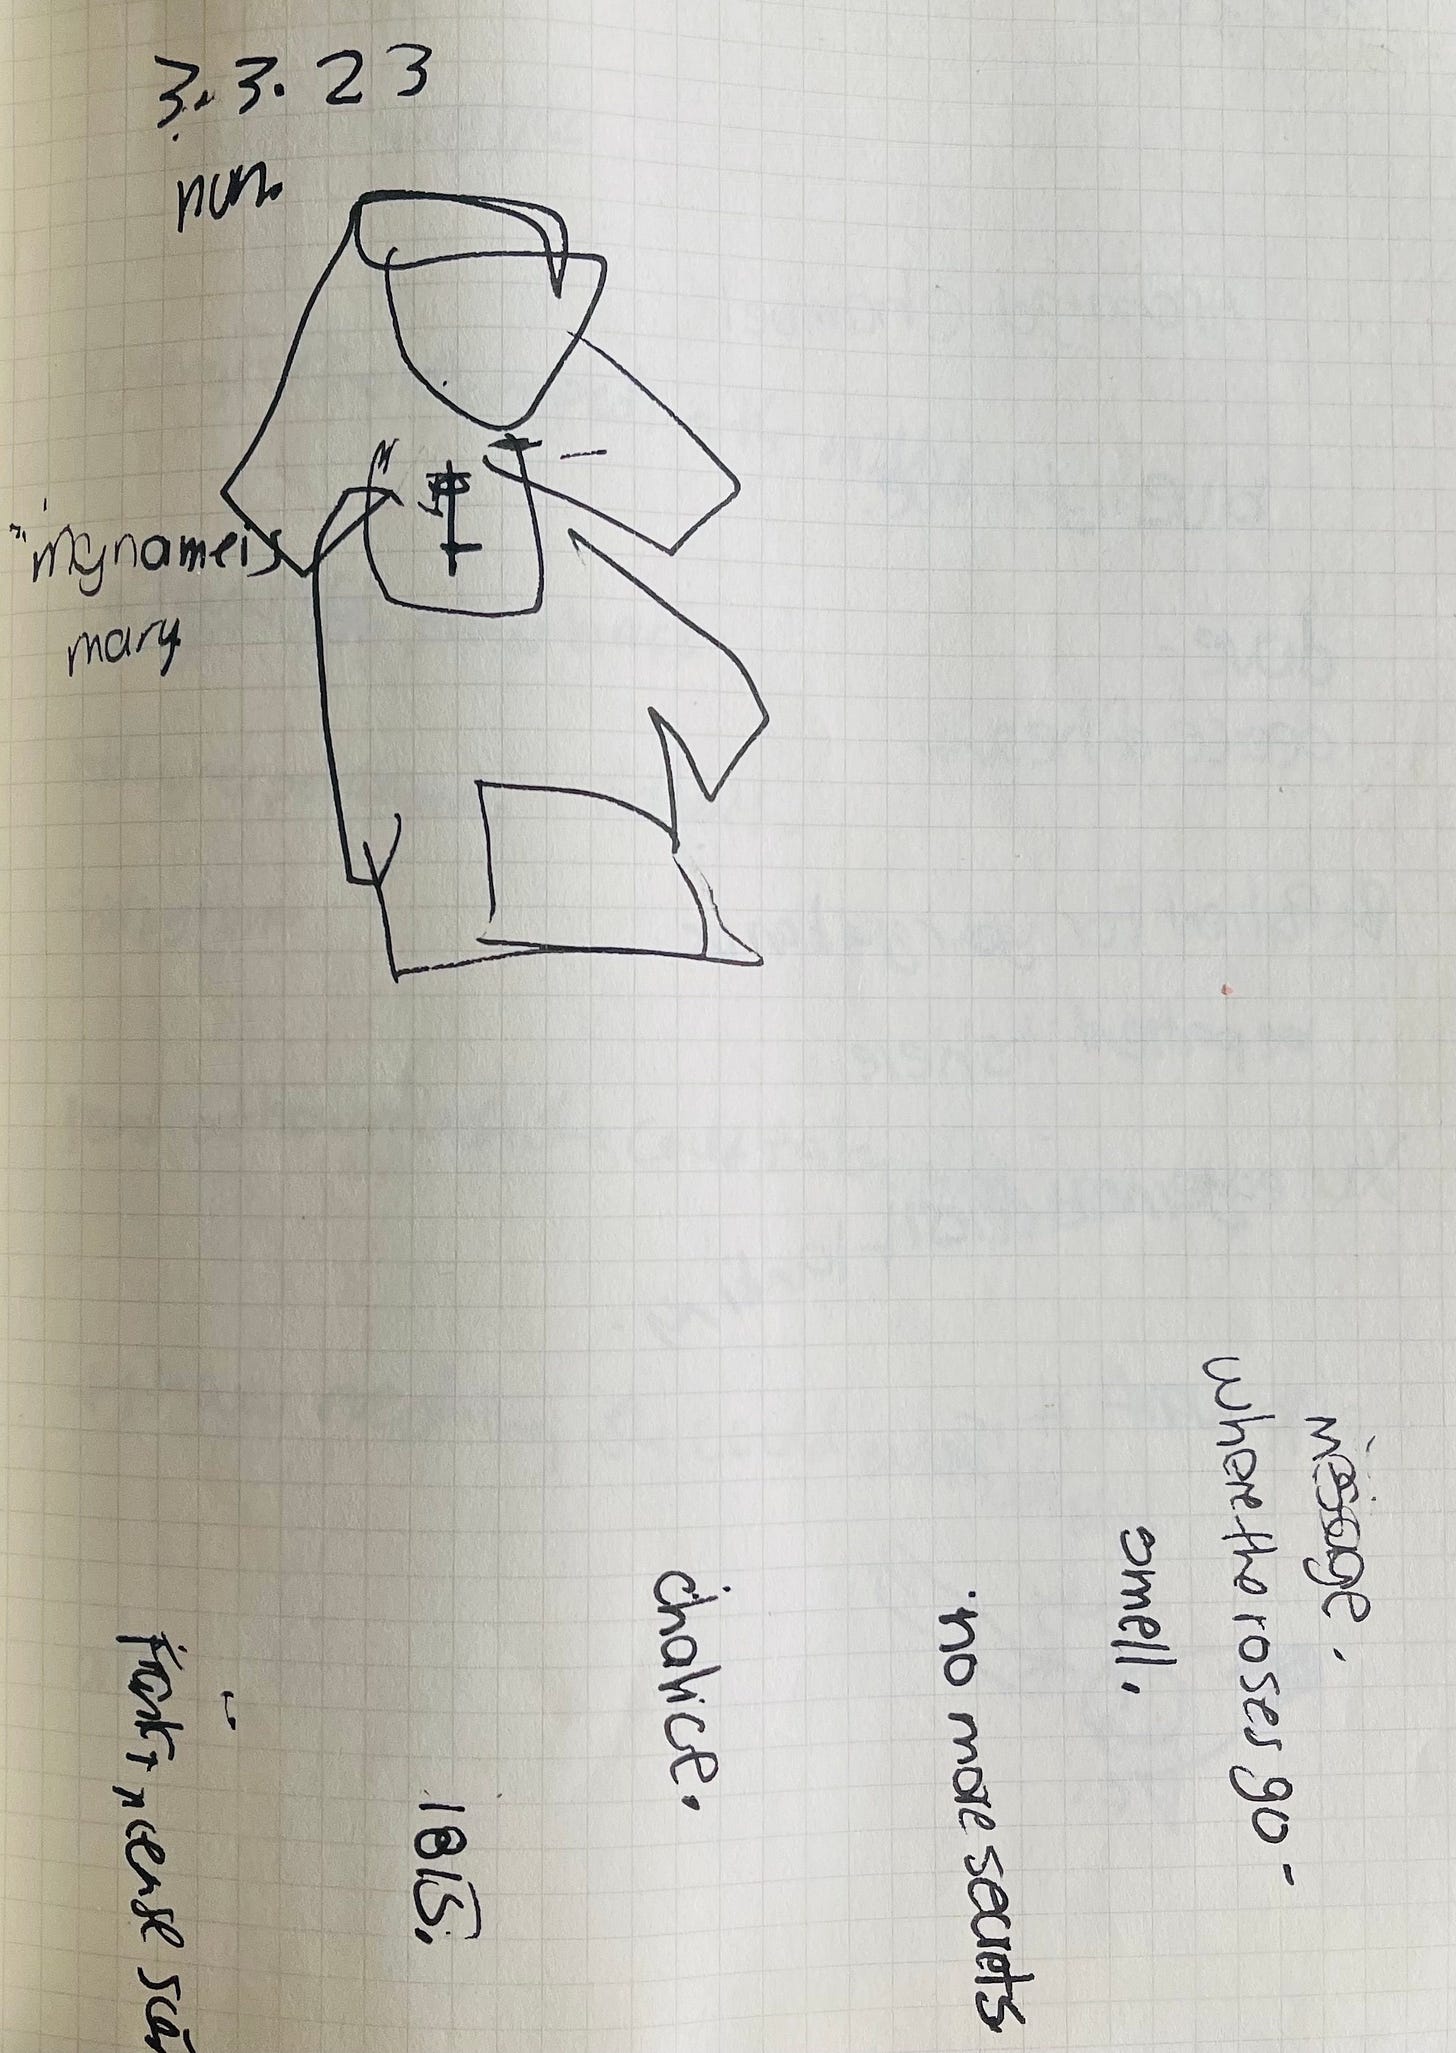 3.3.23
nun.
"mynameis
mary
message.
where the roses go-
smell.
no more secrets
chalice.
1815.